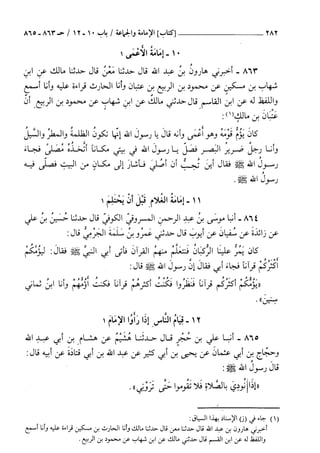 ٢٨٢ [كتاب] الإمامة والجماعة / باب ١٠ - ١٢ / حـ ٨٦٣ - ٨٦٥
١٠ - إمَامَةُ الأَعْمَى ١
٨٦٣ - أخبرني هارونُ بنُ عبد الله قال حدثنا مَعْنٌ قال حدثنا مالك عن ابنِ
شهاب بن مسكينٍ عن محمود بن الربيع بن عتبان وأنا الحارث قراءة عليه وأنا أسمع
واللفظ له عن ابن القاسم قال حدثني مالك عن ابن شهابٍ عن محمود بن الربيع، أنّ
عَتْبَانَ بن مالك(١):
كانَ يَؤُمُّ قَوْمَهُ وهو أَعْمَى وأنه قالَ يا رسولَ الله إنَّها تكونُ الظلمةُ والمطرُ والسَّيلُ
وأنـا رجلٌ ضريرُ البصرِ فصلِّ يـا رسولَ الله في بيتي مكـاناً أتَّخذُهُ مُصَلّى فجاءَ
رســولُ الله ﷺ فقال أينَ تُحِبُّ أن أصلّيَ فـأشارَ إلى مكـانٍ من البيتِ فصلّى فيه
رسولُ الله ﷺ.
١١ - إمَامَةُ الغلامِ قَبْلَ أَنْ يَحْتَلِمَ ١
٨٦٤ - أنبا موسَى بنُ عبدِ الرحمنِ المسروقيُّ الكوفيُّ قال حدثنا حُسَيْنُ بنُ علي
عن زائدةَ عن سُفيانَ عن أيوبَ قال حدثني عَمرو بنُ سَلَمَةَ الجَرْميُّ قال:
كان يَمُرُّ علينا الرُّكبَانُ فنتعلّمُ منهمُ القرآنَ فأتى أبي النبيَّ ﷺ فقالَ: ليؤُمّكُمْ
أكثرُكُمْ قرآناً فجاءَ أبي فقالَ إنَّ رسولَ الله ﷺ قال:
«يَؤُمُّكُمْ أكثرُكُم قرآناً فنَظَرُوا فكُنْتُ أكثرهُمْ قرآناً فكنتُ أؤُمُّهُمْ وأنا ابنُ ثماني
سِنينَ».
١٢ - قِيَامُ النَّاسِ إذَا رَأَوُا الإمَامَ ١
٨٦٥ - أنبـا علي بن حُجْرٍ قـال حـدثنـا هُشَيْمٌ عن هشـام بن أبي عبـدِ الله
وحجّاج بن أبي عثمانَ عن يحيى بن أبي كثير عن عبد الله بن أبي قتادةَ عن أبيه قال:
قال رسولُ الله ﷺ:
«إذَا نُودِيَ بالصَّلاةِ فَلاَ تَقُومُوا حَتَّى تَرَوْنِي».
(١) جاء في (ز) الإسناد بهذا السياق:
أخبرني هارون بن عبد الله قال حدثنا معن قال حدثنا مالك وأنا الحارث بن مسكين قراءة عليه وأنا أسمع
واللفظ له عن ابن القسم قال حدثني مالك عن ابن شهاب عن محمود بن الربيع.